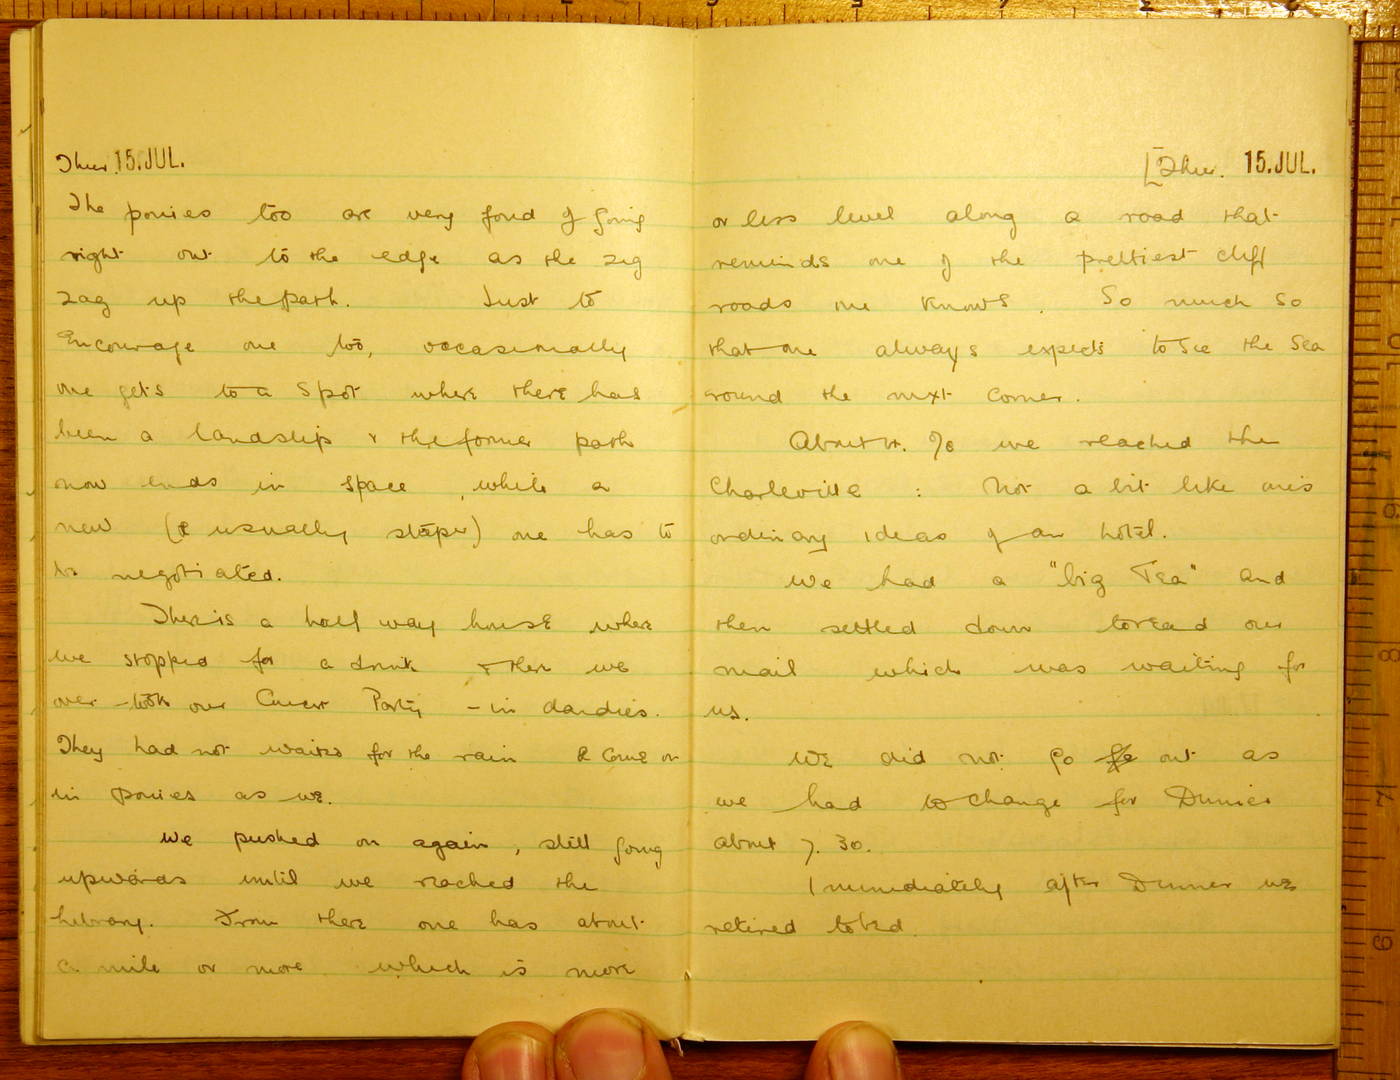 Thur. 15. JUL.
The ponies too are very fond of going
right out to the edge as the zig
zag up the path. Just to
Encourage one too, occasionally
one gets to a spot where there has
been a landslip & the former path
now ends in space, while a
new (& usually steeper) one has to
be negotiated.
There is a half way house where
we stopped for a drink & then we
over-took our Party - in dandies.
They had not waited for the rain & come on
in ponies as we.
We pushed on again, still going
upwards until we reached the
Library. From there one has about
a mile or more which is more
[Thur. 15. JUL.
or less level along a road that
reminds one of the prettiest cliff
roads one knows. So much so
that one always expects to see the Sea
round the next corner.
About we reached the
Charleville : Not a bit like one's
ordinary ideas of an hotel.
We had a "big Tea" and
then settled down to read our
mail which was waiting for
us.
We did not go out as
we had to change for Dinner
about 7. 30.
Immediately after Dinner we
retired to bed.